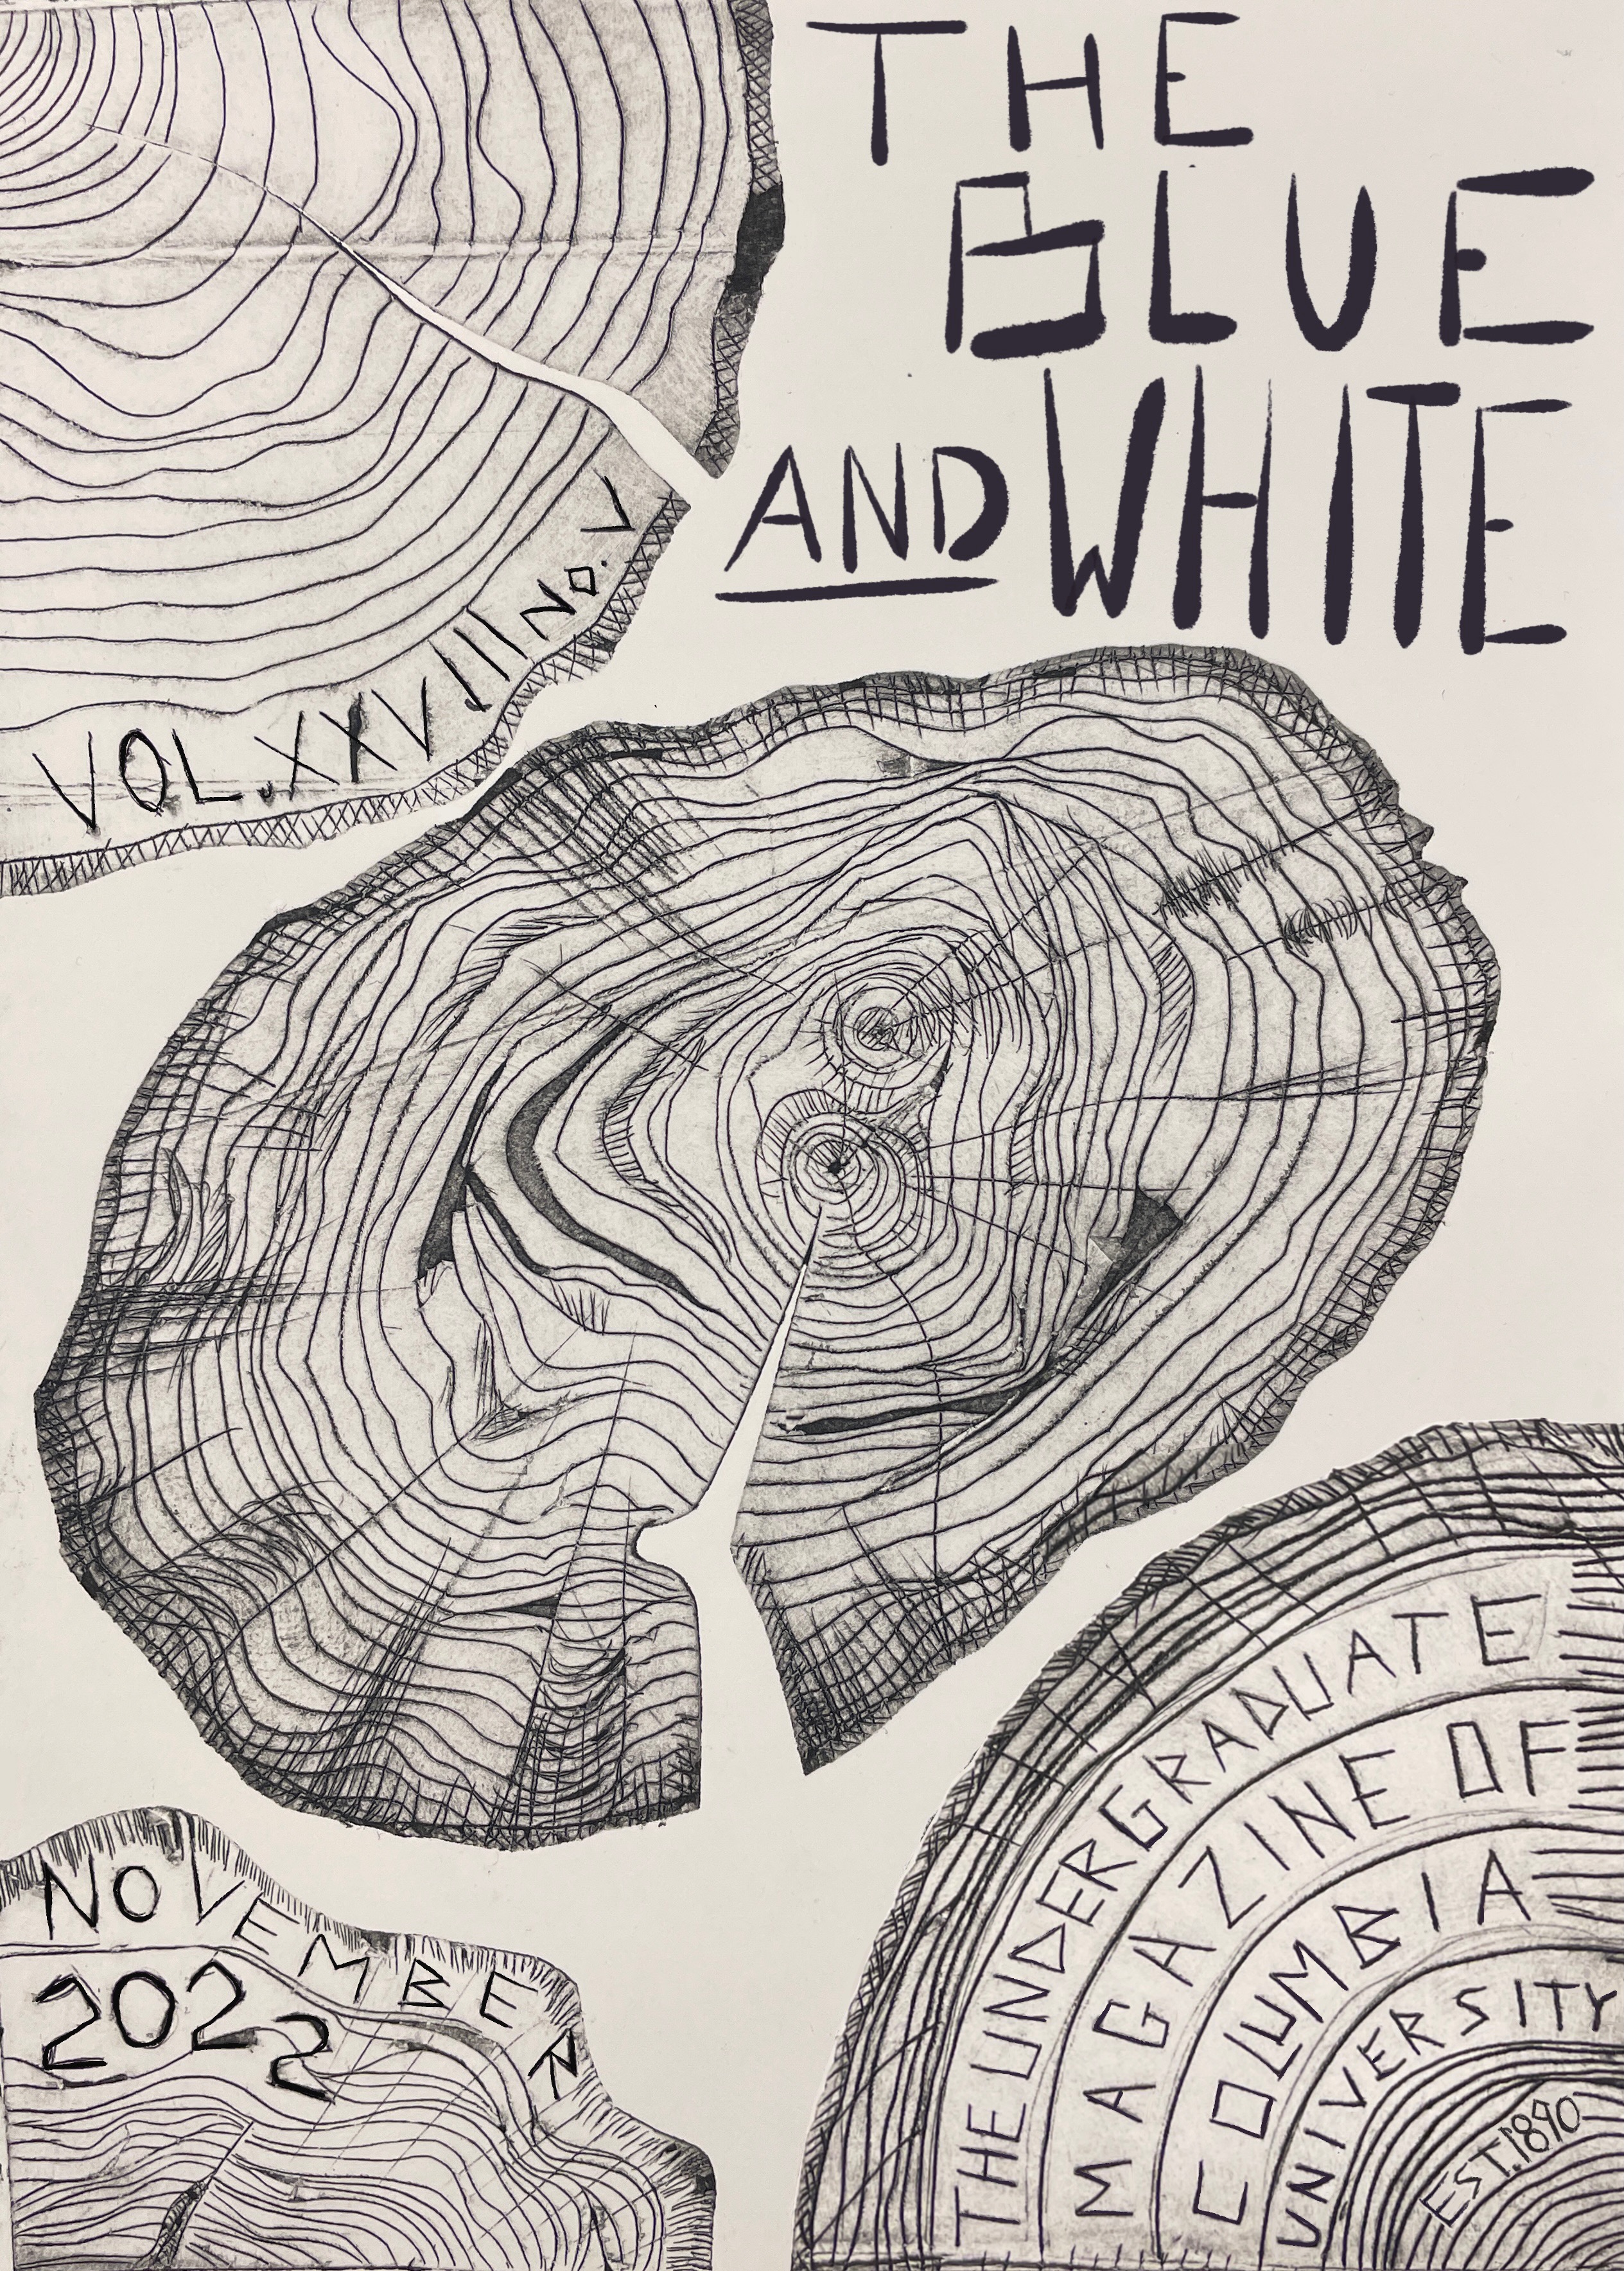 THE
BLUE
AND WHITE
VOL. XXVIII No. V
THE UNDERGRADUATE
MAGAZINE OF
COLUMBIA
UNIVERSITY
EST. 1890
NOVEMBER
2022